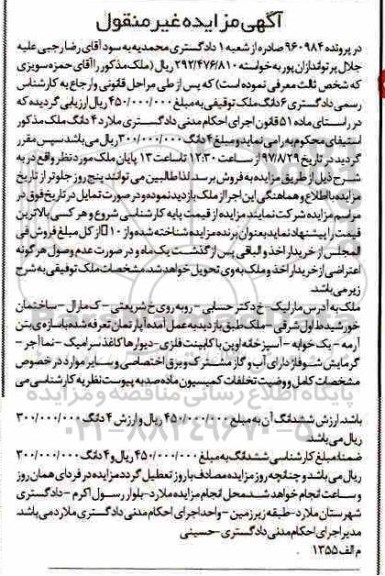 آگهی مزایده غیر منقول
در پرونده ۹۶۰۹۸۴ صادره از شعبه ۱ دادگستری محمدیه به سود آقای رضا رجبی علیه
جلال پرتواندازان پور به خواسته ۲۹۲/۴۷۶/۸۱۰ ریال (ملک مذکور را آقای حمزه سویزی
که شخص ثالث معرفی نموده است) که پس از طی مراحل قانونی و ارجاع به کارشناس
رسمی دادگستری ۶ دانگ ملک توقیفی به مبلغ ۴۵۰/۰۰۰/۰۰۰ ریال ارزیابی گردیده که
در راستای ماده ۵۱ قانون اجرای احکام مدنی دادگستری ملارد ۴ دانگ ملک مذکور
استیفای محکوم به را می نماید و مبلغ ۴ دانگ ۳۰۰/۰۰۰/۰۰۰ ریال می باشد سپس مقرر
گردید در تاریخ ۹۷/۸/۲۹ از ساعت ۱۲:۳۰ تا ساعت ۱۳ پایان ملک مورد نظر واقع در به
شرح ذیل از طریق مزایده به فروش برسد لذا طالبین می توانند پنج روز جلوتر از تاریخ
مزایده با اطلاع و هماهنگی این اجرا از ملک بازدید نموده و در صورت تمایل در تاریخ فوق در
مراسم مزایده شرکت نمایند مزایده از قیمت پایه کارشناسی شروع و هر کسی بالاترین
قیمت را پیشنهاد نماید بعنوان برنده مزایده شناخته شده و از ۱۰٪ از کل مبلغ فروش فی
المجلس از خریدار اخذ و الباقی پس از گذشت یک ماه و در صورت عدم وصول هر گونه
اعتراضی از خریدار اخذ و ملک به وی تحویل خواهد شد، مشخصات ملک توقیفی به شرح
زیر می باشد.
ملک به آدرس مارلیک - خ دکتر حسابی - روبه روی خ شریعتی - ک مارال - ساختمان
خورشید ط اول شرقی - ملک طبق بازدید به عمل آمده آپارتمان تعرفه شده با سازه ی بتن
آرمه - یک خوابه - آشپزخانه اوپن با کابینت فلزی - دیوارها کاغذ سرامیک - نما آجر -
گرمایش شوفاژ دارای آب و گاز مشترک و برق اختصاصی و سایر موارد در خصوص
مشخصات کامل و وضیت تخلفات کمیسیون ماده صد به پیوست نظریه کارشناسی می
باشد. ارزش ششدانگ آن به مبلغ ۴۵۰/۰۰۰/۰۰۰ ریال و ارزش ۴ دانگ ۳۰۰/۰۰۰/۰۰۰
ریال می باشد
ضمنا مبلغ کارشناسی ششدانگ به مبلغ ۴۵۰/۰۰۰/۰۰۰ ریال و ۴ دانگ ۳۰۰/۰۰۰/۰۰۰
ریال می باشد و چنانچه روز مزایده مصادف با روز تعطیل گردد مزایده در فردای همان روز
و ساعت انجام خواهد شد. محل انجام مزایده ملارد - بلوار رسول اکرم - دادگستری
شهرستان ملارد - طبقه زیرزمین - واحد اجرای احکام مدنی دادگستری ملارد می باشد.
مدیر اجرای احکام مدنی دادگستری - حسینی
م الف ۱۳۵۵